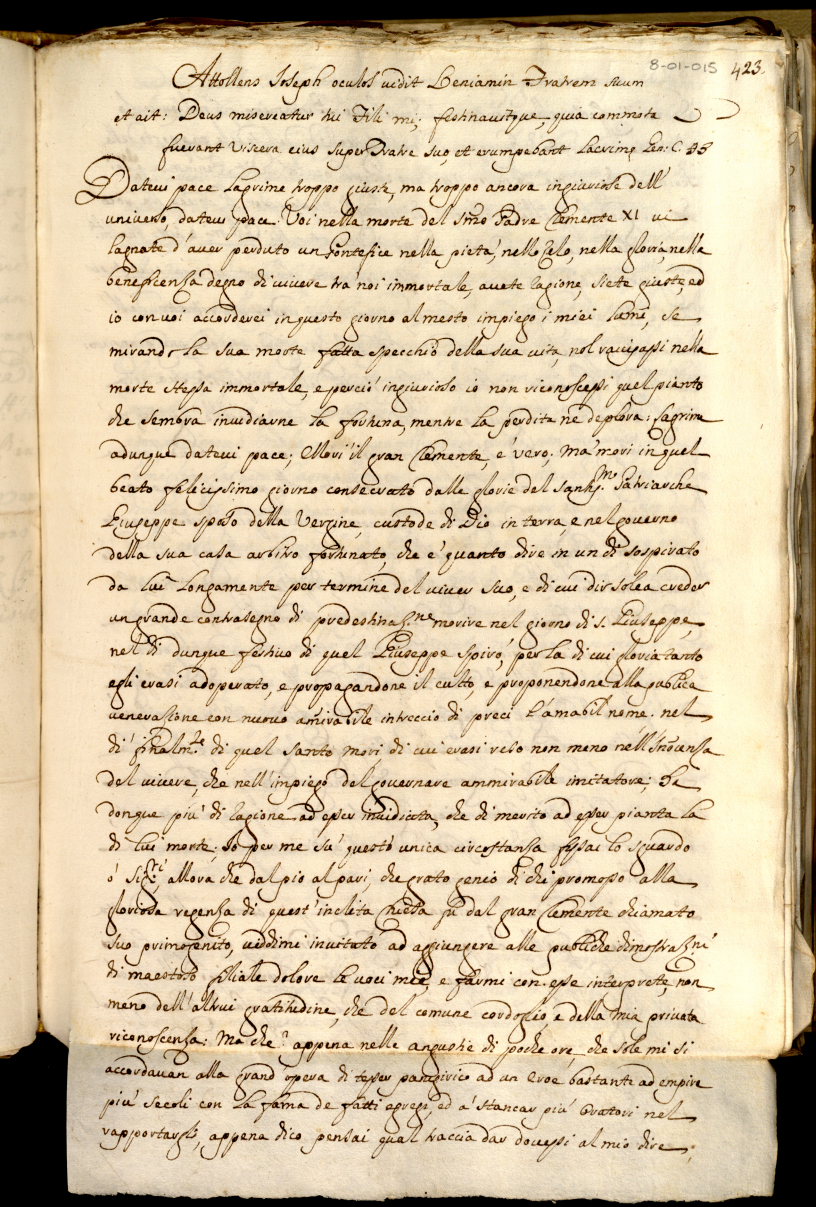 8-01-015 423.
Attollens Ioseph oculos vidit Beniamin Fratrem suum
et ait: Deus misereatur tui Fili mi; festinavitque, quia commota
fuerant viscera eius super Fratre suo, et erumpebant Lacrime Gen: C. 43
Datevi pace lagrime troppo giuste, ma troppo ancora ingiuriose dell'
universo, datevi pace. Voi nella morte del Smo Padre Clemente XI vi
lagnate d'aver perduto un Pontefice nella pietà, nello Zelo, nella gloria, nella
beneficenza degno di vivere tra noi immortale, avete ragione, siete giuste, ed
io con voi accorderei in questo giorno al mesto impiego i miei lumi, se
mirando la sua morte fatta specchio della sua vita, nol ravisassi nella
morte stessa immortale, e perciò ingiurioso io non riconoscessi quel pianto
che sembra invidiarne la fortuna, mentre la perdita ne deplora: lagrime
adunque datevi pace; Morì il gran Clemente, è vero; ma morì in quel
beato felicissimo giorno consecrato dalle glorie del Santiss.mo Patriarche
Giuseppe sposo della Vergine, custode di Dio in terra, e nel governo
della sua casa arbitro fortunato, che è quanto dire in un dì sospirato
da lui longamente per termine del viver suo, e di cui dir solea creder
un grande contrasegno di predestinaz.ne morire nel giorno di S. Giuseppe,
nel dì dunque festivo di quel Giuseppe spirò, per la di cui gloria tanto
egli erasi adoperato, e propagandone il culto, e proponendone alla publica
venerazione con nuovo amirabile intreccio di preci l'amabil nome. nel
dì finalm.te di quel santo morì, di cui erasi reso non meno nell'Inocenza
del vivere, che nell'impiego del governare ammirabile imitatore; Ha
dongue più di ragione ad esser invidiata, che di merito ad esser pianta la
di lui morte; Io per me su questo unica circostanza fissai lo sguardo
ò Sig.ri, allora che dal pio al pari, che grato genio di chi promosso alla
gloriosa regenza di quest'inclita Chiesa fu dal gran Clemente chiamato
suo primogenito, viddimi invitato ad aggiungere alle publiche dimostraz.ni
di maestoso filiale dolore le voci mie, e farmi con esse interprete, non
meno dell'altrui gratitudine, che del comune cordoglio, e della mia privata
riconoscenza: Ma che? appena nelle angustie di poche ore, che sole mi si
accordavan alla grand'opera di tesser panegirico ad un Eroe bastante ad empire
più secoli con la fama de fatti egregi, ed a' stancar più Oratori nel
rapportargli, appena dico pensai qual traccia dar dovessi al mio dire,